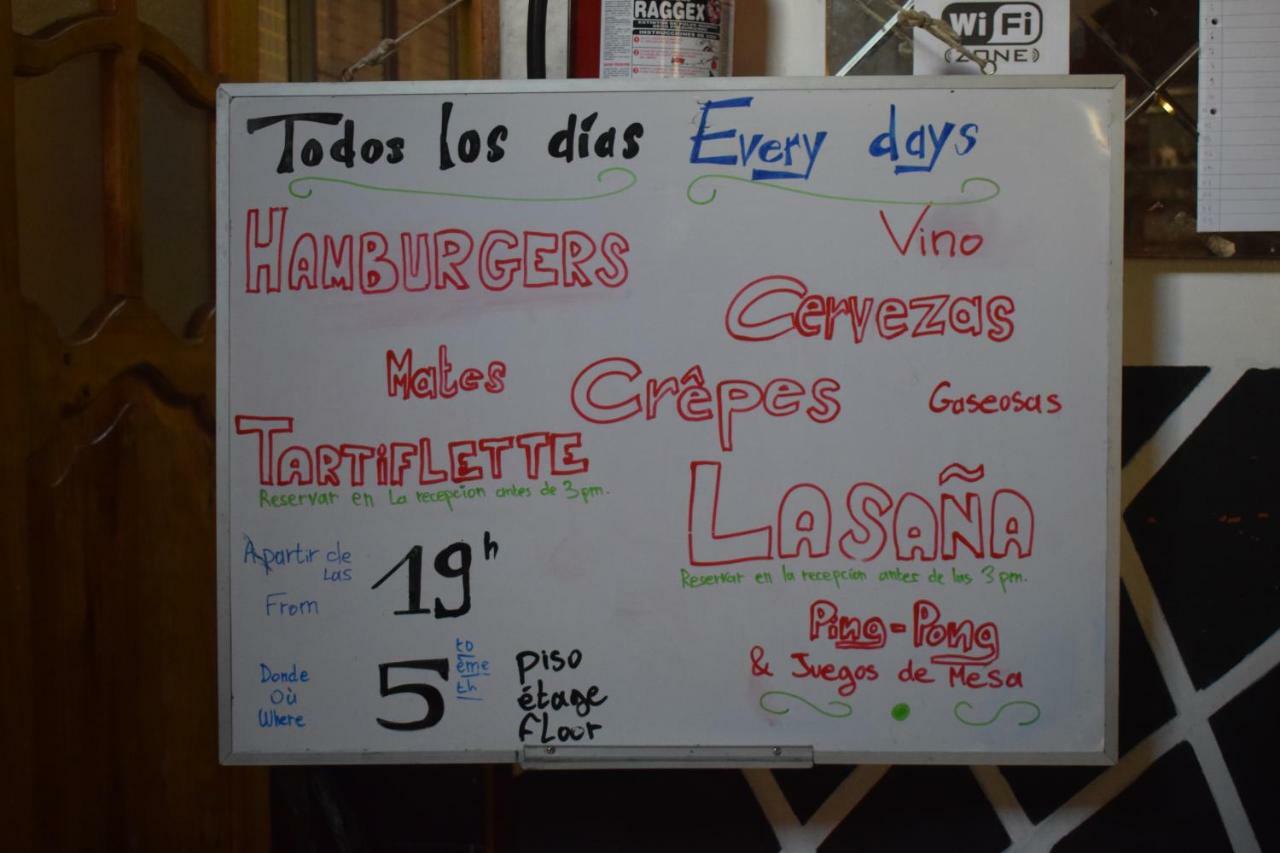 RAGGEX
INSTRUCCIONES
WiFi
ZONE
Todos los días
Every days
HAMBURGERS
Vino
Cervezas
Mates
Crêpes
Gaseosas
TARTiFLETTE
Reservar en la recepcion antes de 3 pm.
LASAÑA
Reservar en la recepcion antes de las 3 pm.
A partir de
las
From
19h
Donde
Où
Where
5
to
ème
th
piso
étage
floor
Ping-Pong
& Juegos de Mesa